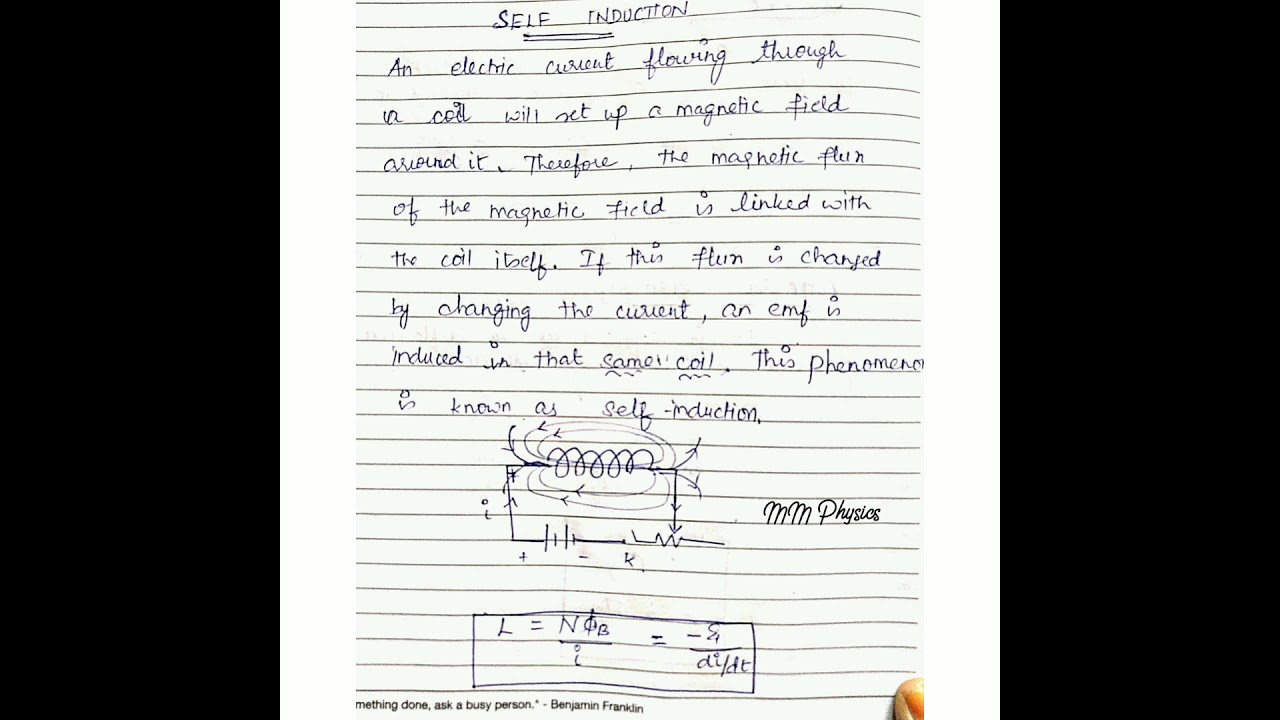 SELF INDUCTION
An electric current flowing through
a coil will set up a magnetic field
around it. Therefore, the magnetic flux
of the magnetic field is linked with
the coil itself. If this flux is changed
by changing the current, an emf is
induced in that same coil. This phenomeno
is known as self-induction.
i
MM Physics
+ - K
L = NΦB / i = -ε / di/dt
mething done, ask a busy person." - Benjamin Franklin